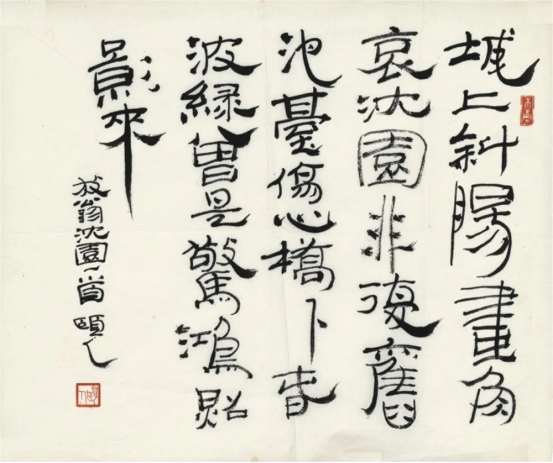 城上斜陽畫角
哀沈園非復舊
池臺傷心橋下春
波綠曾是驚鴻照
影來
放翁沈園一首 頤人